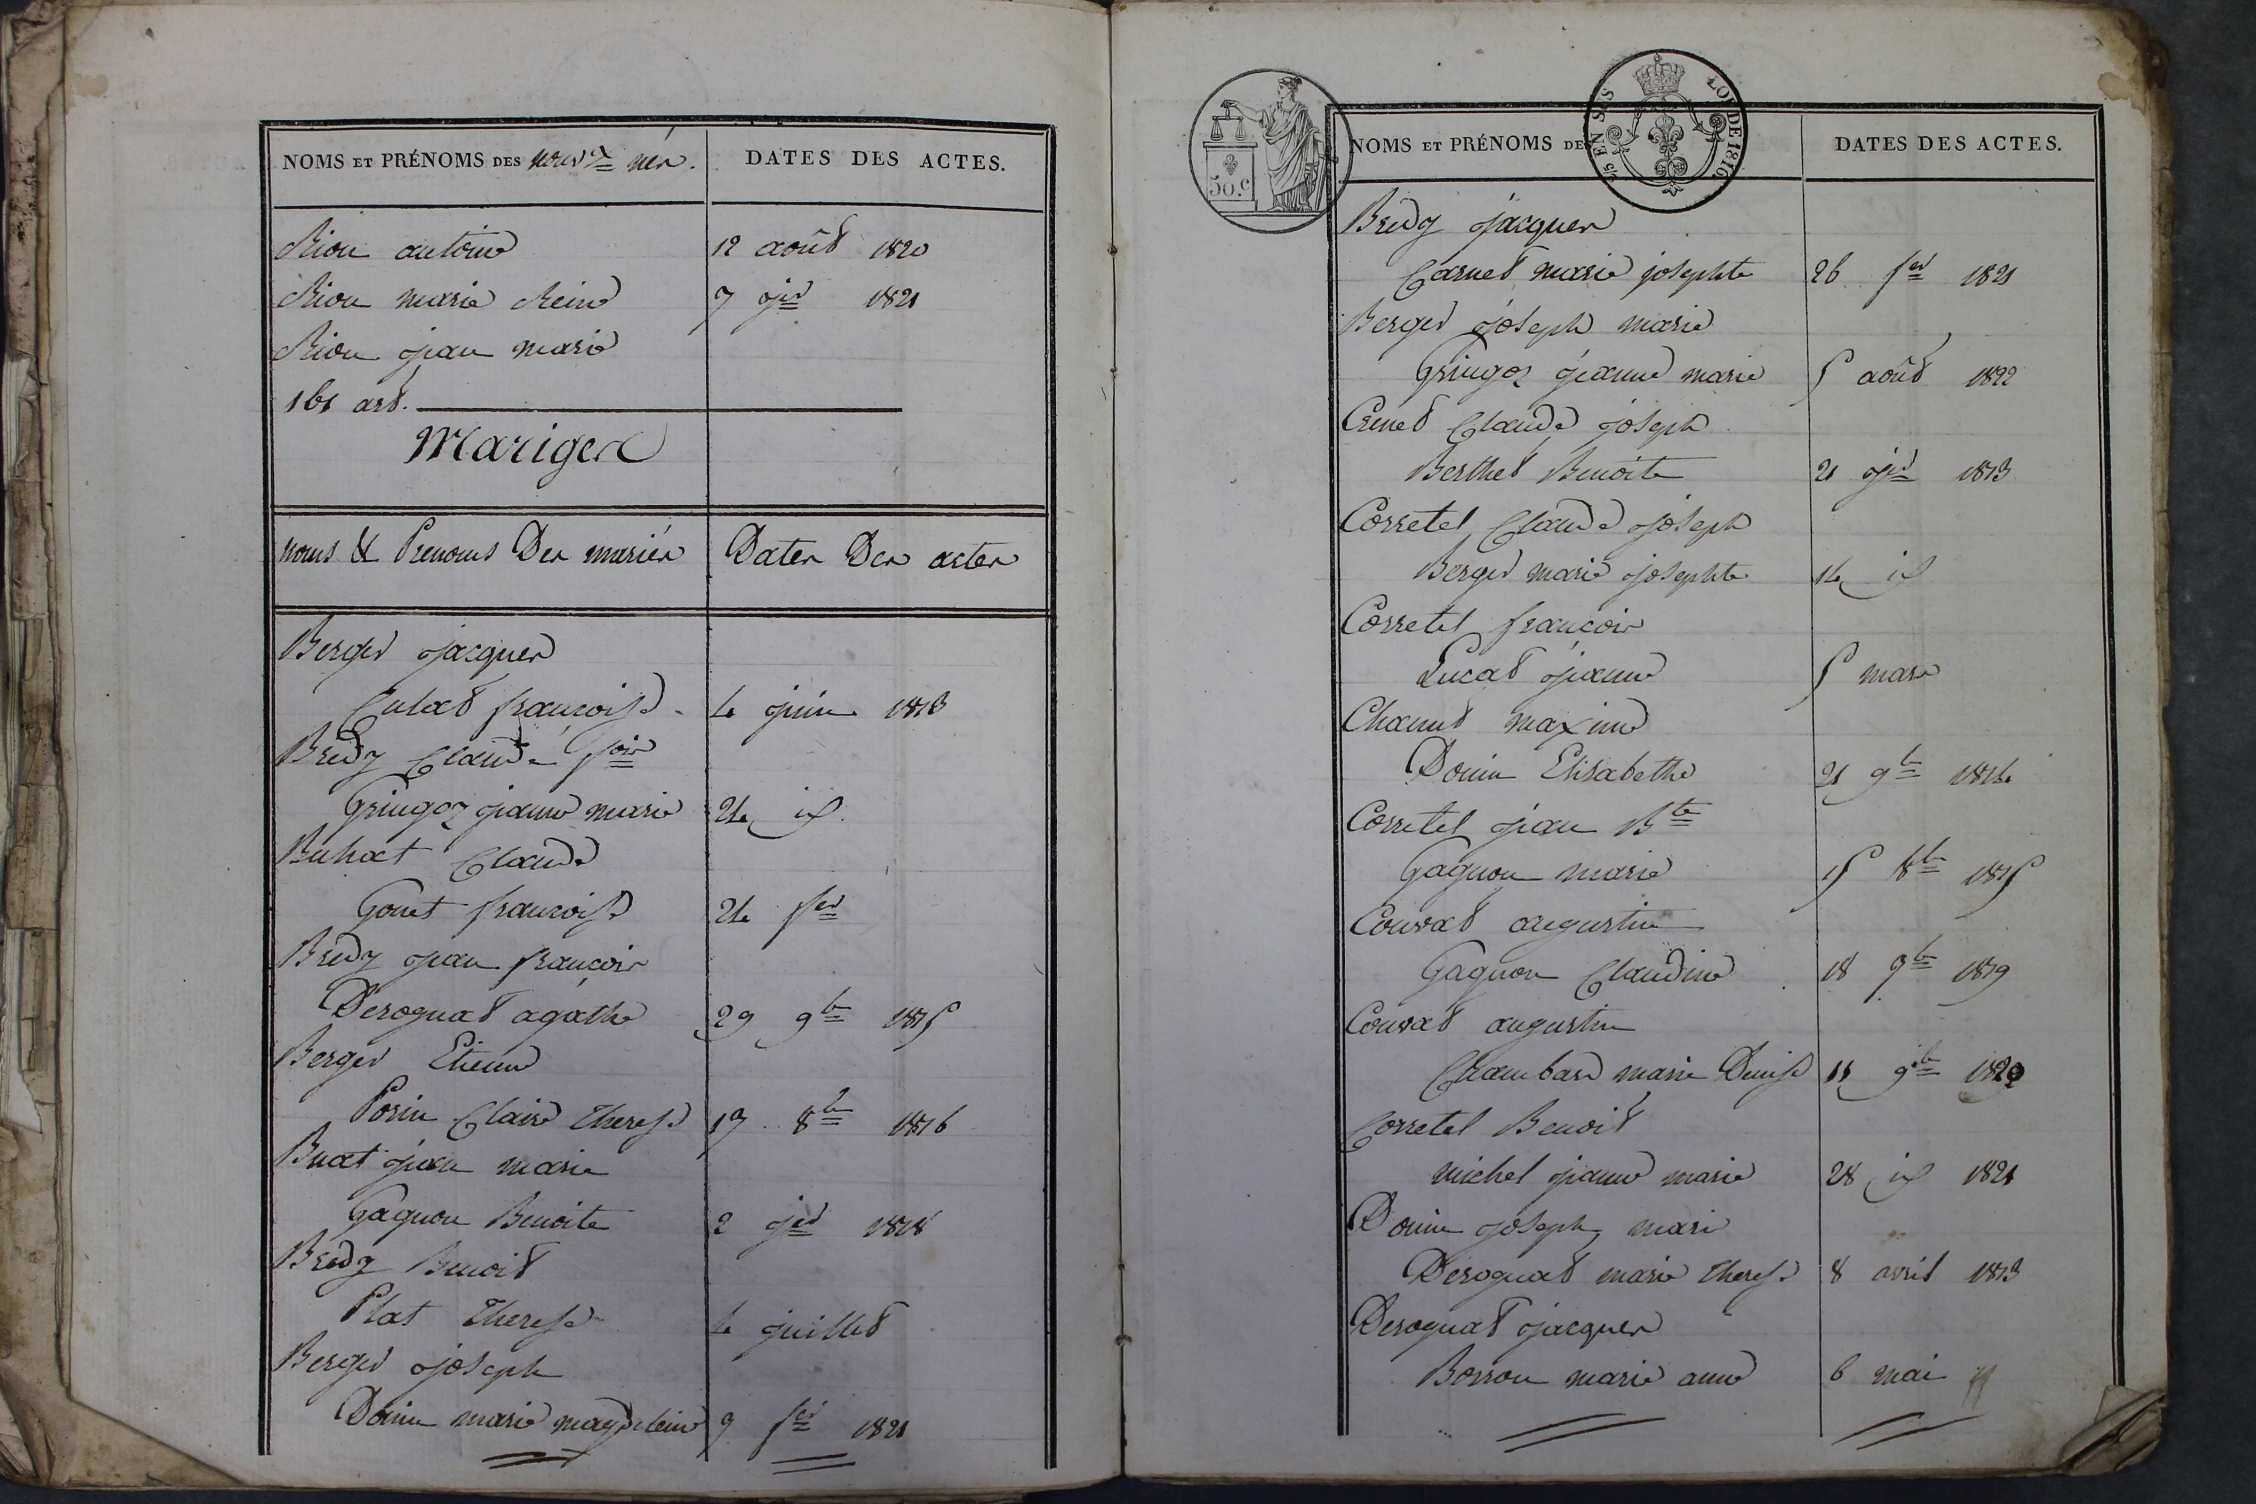 NOMS ET PRÉNOMS DES nouv.x nés.
DATES DES ACTES.
Riou antoine 12 août 1820
Riou marie Reine 7 jer 1821
Riou jean marie
161 art.
Mariges
noms & Prenoms Des mariés Dates Des actes
Berger jacques
Culat françoise 4 juin 1813
Bredy Claude fois
Gringoz jeanne marie 24 id
Buhat Claude
Gouet françoise 24 fer
Bredy jean françois
Derognat agathe 29 9bre 1815
Berger Etienne
Porin Claire Therese 17 8bre 1816
Buat jean marie
Gagnon Benoite 2 jer 1818
Bredy Benoit
Plat Therese 4 juillet
Berger joseph
Douin marie magdeleine 9 fer 1821
50.C
25 EN SUS
LOI DE 1816
NOMS ET PRÉNOMS DES
DATES DES ACTES.
Bredy jacques
Carnet marie josephte 26 fer 1821
Berger joseph marie
Gringoz jeanne marie 5 août 1822
Crenet Claude joseph
Berthet Benoite 21 jer 1813
Corretel Claude joseph
Berger marie josephte 14 id
Corretel françois
Lucat jeanne 5 mars
Chanut maxime
Douin Elisabethe 21 9bre 1814
Corretel jean Bte
Gagnon marie 15 8bre 1815
Couvat augustin
Gagnon Claudine 18 9bre 1819
Couvat augustin
Chambard marie Denise 11 9bre 1820
Corretel Benoit
michel jeanne marie 28 id 1821
Douin joseph marie
Derognat marie Therese 8 avril 1813
Derognat jacques
Borron marie anne 6 mai